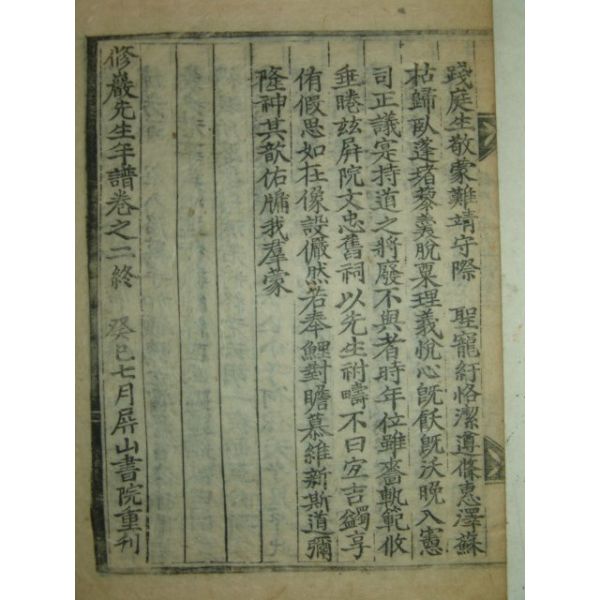 踐庭生敬蒙難靖守際 聖寵紆恪潔遵條惠澤蘇
枯歸臥蓬堵藜羹脫粟理義悅心旣飫旣沃晩入憲
司正議寔持道之將廢不與者時年位雖嗇執範攸
垂睠玆屛院文忠舊祠以先生祔疇不曰宜吉蠲享
侑假思如在像設儼然若奉鯉對瞻慕維新斯道彌
隆神其歆佑牖我羣蒙
修巖先生年譜卷之二終 癸巳七月屛山書院重刊